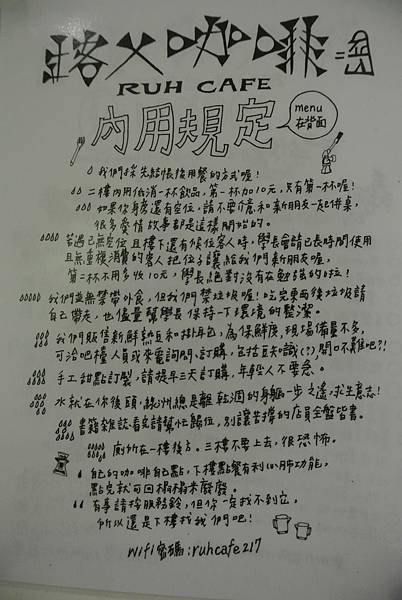 路人咖啡二召
RUH CAFE
內用規定
menu
在背面
我們採先結帳後用餐的方式喔!
二樓內用低消一杯飲品,第一杯加10元,只有第一杯喔!
如果你身旁還有空位,請不要害怕和新朋友一起併桌,
很多愛情故事都是這樣開始的。
若遇已無空位且樓下還有候位客人時,學長會請已長時間使用
且無重複消費的客人把位子讓給我們新朋友喔,
第二杯不用多收10元,學長絕對沒有在勉強的啦!
我們並無禁帶外食,但我們禁垃圾喔!吃完東西後垃圾請
自己帶走,也儘量幫學長保持一下環境的整潔。
我們販售新鮮熟豆和掛耳包,為保鮮度,現場備量不多,
可洽吧檯人員或來電詢問、訂購,包括豆知識(?)開口不難吧?!
手工甜點訂製,請提早三天訂購,年輕人不要急。
水就在你後頭,綠洲總是離乾涸的身軀一步之遙,求生意志!
書籍雜誌看完請幫忙歸位,別讓苦撐的店員全盤皆書。
廁所在一樓後方。三樓不要上去,很恐怖。
自己的咖啡自己點,下樓點餐有利心肺功能,
點完就可回榻榻米廢廢。
有事請按服務鈴,但你一定找不到它,
所以還是下樓找我們吧!
wifi密碼:ruhcafe217